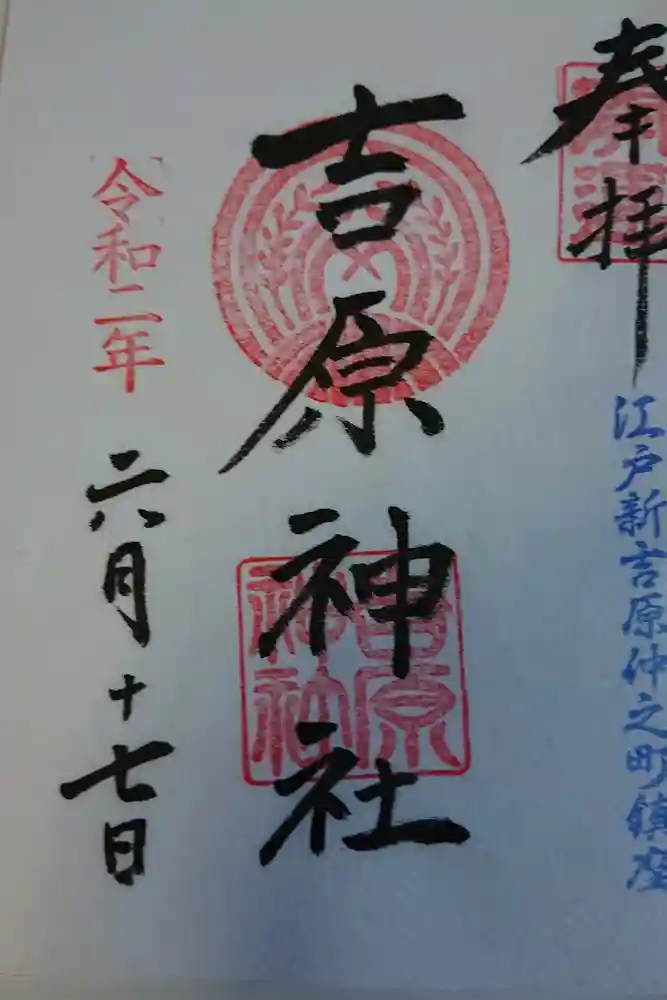 奉拝
江戸新吉原仲之町鎮座
吉原神社
吉原神社
令和二年
六月十七日